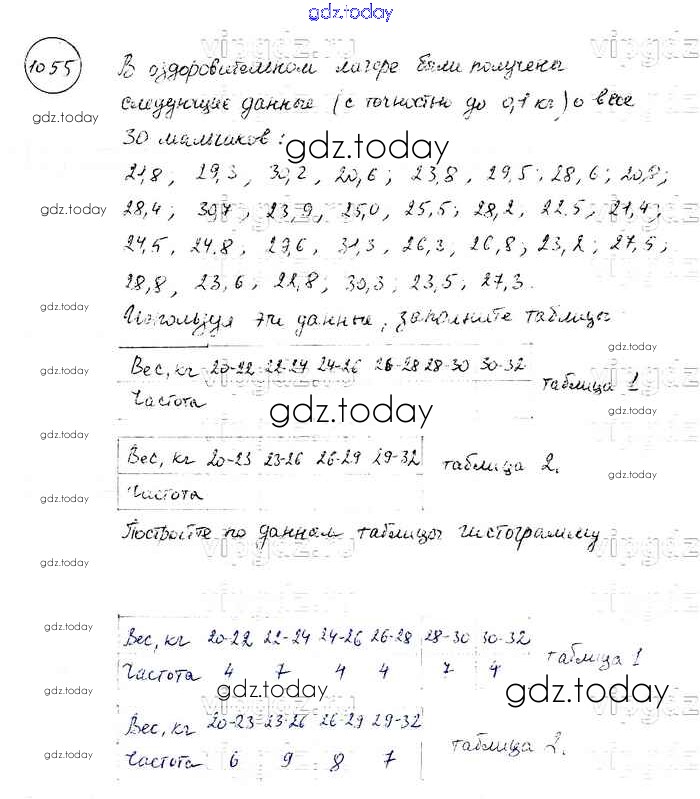 gdz.today
1055
В оздоровительном лагере были получены
gdz.today
следующие данные (с точностью до 0,1 кг) о весе
30 мальчиков:
gdz.today
21,8, 29,3, 30,2, 20,6; 23,8, 29,5, 28,6; 20,8;
gdz.today
28,4; 307; 23,9, 25,0, 25,5; 28,2, 22.5, 21,4;
24,5, 24.8, 29,6, 31,3, 26,3, 26,8; 23,2; 27,5;
28,8, 23,6; 22,8; 30,3; 23,5; 27,3.
gdz.today
Используя эти данные, заполните таблицы
gdz.today
Вес, кг 20-22 22-24 24-26 26-28 28-30 30-32
gdz.today
таблица 1
Частота
gdz.today
gdz.today
Вес, кг 20-23 23-26 26-29 29-32
таблица 2.
gdz.today
gdz.today
Частота
Постройте по данным таблицы гистограмму
gdz.today
gdz.today
Вес, кг 20-22 22-24 24-26 26-28 28-30 30-32
таблица 1
gdz.today
Частота 4 7 4 4 7 4
gdz.today
gdz.today
gdz.today
Вес, кг 20-23 23-26 26-29 29-32
таблица 2.
gdz.today
gdz.today
Частота 6 9 8 7